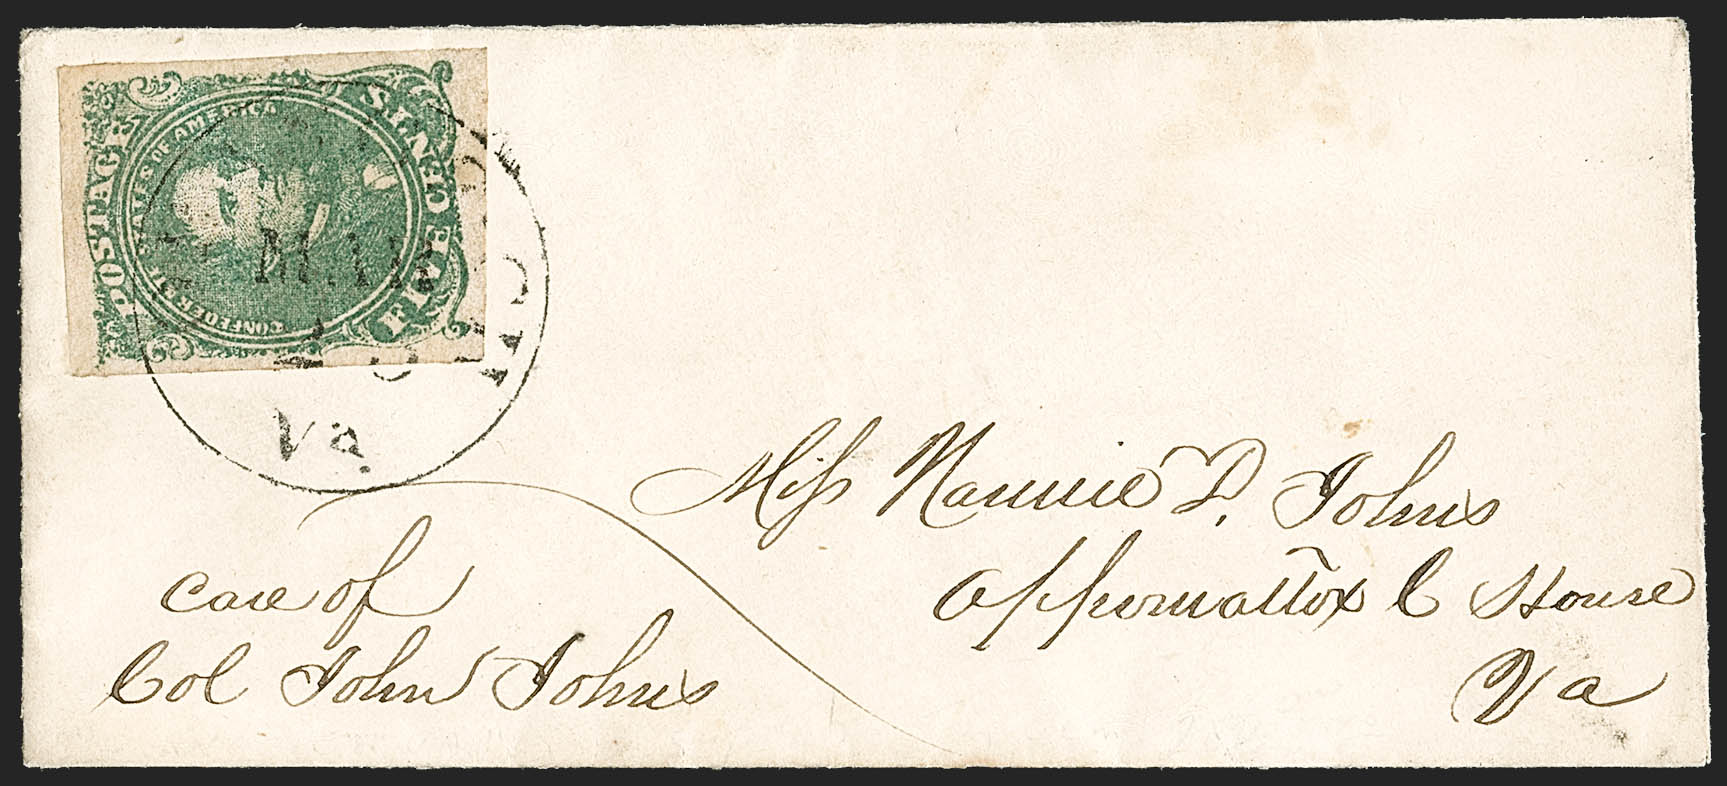 POSTAGE
CONFEDERATE STATES OF AMERICA
FIVE CENTS
MAR
Va.
Miss Nannie D. Johns
Appomattox C House
Va
care of
Col John Johns